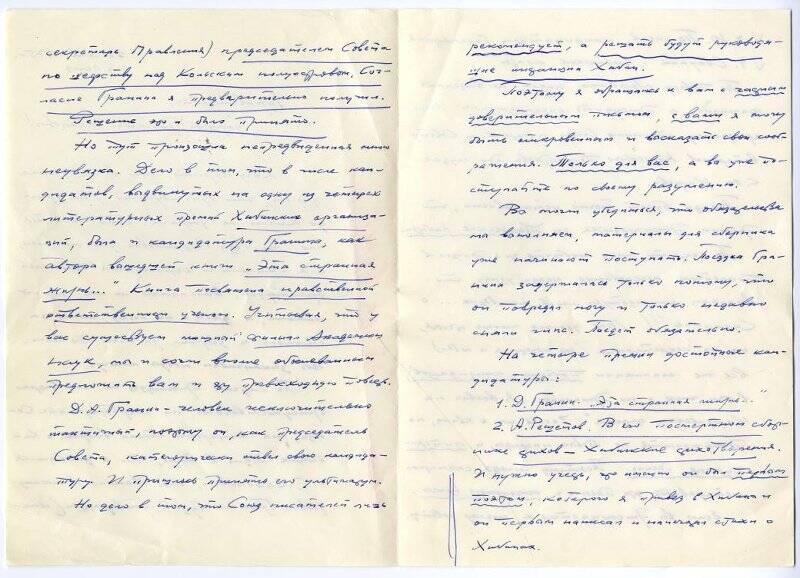 секретарь Правления) председателем Совета
по шефству над Кольским полуостровом. Сог-
ласие Гранина я предварительно получил.
Решение это и было принято.
Но тут произошла непредвиденная нами
неувязка. Дело в том, что в числе кан-
дидатов, выдвинутых на одну из четырех
литературных премий Хибинских организа-
ций, была и кандидатура Гранина, как
автора вышедшей книги „Эта странная
жизнь..." Книга посвящена нравственной
ответственности ученого. Учитывая, что у
вас существует мощный филиал Академии
Наук, мы и сочли вполне обоснованным
предложить вам и эту превосходную повесть.
Д. А. Гранин - человек исключительно
тактичный, поэтому он, как председатель
Совета, категорически отвел свою кандида-
туру. И пришлось принять его ультиматум.
Но дело в том, что Союз писателей лишь
рекомендует, а решать будут руководя-
щие товарищи Хибин.
Поэтому я обращаюсь к вам с частным
доверительным письмом, с вами я могу
быть откровенным и высказать свои сооб-
ражения. Только для вас, а вы уже по-
ступайте по своему разумению.
Вы могли убедиться, что обязательства
мы выполняем, материалы для сборника
уже начинают поступать. Поездка Гра-
нина задержалась только потому, что
он повредил ногу и только недавно
сняли гипс. Поедет обязательно.
На четыре премии достойные кан-
дидатуры:
1. Д. Гранин. „Эта странная жизнь..."
2. А. Решетов. В его посмертном сбор-
нике стихов - Хибинские стихотворения.
И нужно учесть, что именно он был первым
поэтом, которого я привез в Хибины и
он первым написал и напечатал стихи о
Хибинах.